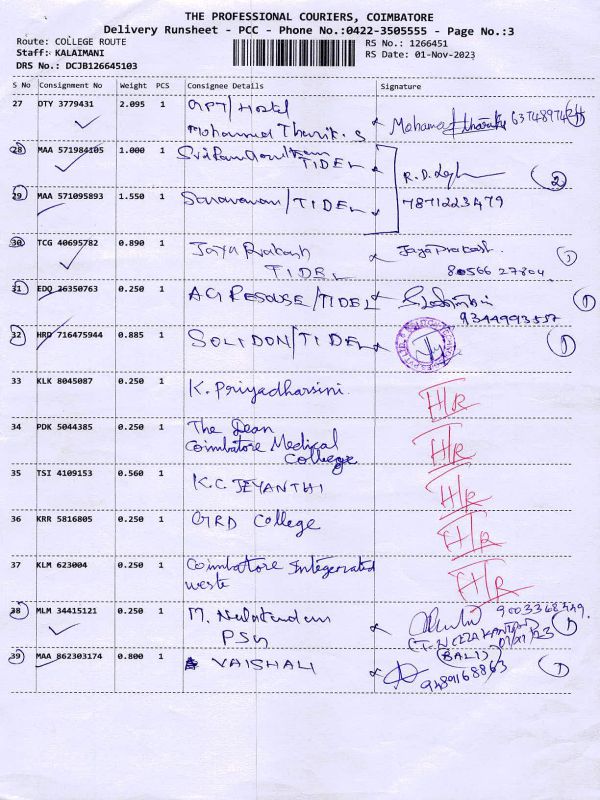 THE PROFESSIONAL COURIERS, COIMBATORE
Delivery Runsheet - PCC - Phone No.:0422-3505555 - Page No.:3
Route: COLLEGE ROUTE
Staff: KALAIMANI
DRS No.: DCJB126645103
RS No.: 1266451
RS Date: 01-Nov-2023
S No Consignment No Weight PCS Consignee Details Signature
27 DTY 3779431 2.095 1 GPT/Hostel
Mohammed Tharik. S
28 MAA 571984105 1.000 1 TIDEL
R.D.
2
29 MAA 571095893 1.550 1 Saravanan/TIDEL 7871223479
30 TCG 40695782 0.890 1 Jaya Prakash Jaya Prakash.
TIDEL 80566 27804
1
31 EDQ 26350763 0.250 1 /TIDEL
9344993557
1
32 HRD 716475944 0.885 1 SOLIDON/TIDEL
1
33 KLK 8045087 0.250 1 K. Priyadharsini. H/R
34 PDK 5044385 0.250 1 The Dean
Coimbatore Medical
College
H/R
35 TSI 4109153 0.560 1 K.C. JEYANTHI H/R
36 KRR 5816805 0.250 1 GRD College H/R
37 KLM 623004 0.250 1 Coimbatore Integerated
weste
H/R
38 MLM 34415121 0.250 1 M.
PSG
1
39 MAA 862303174 0.800 1 VAISHALI
9489168863
1